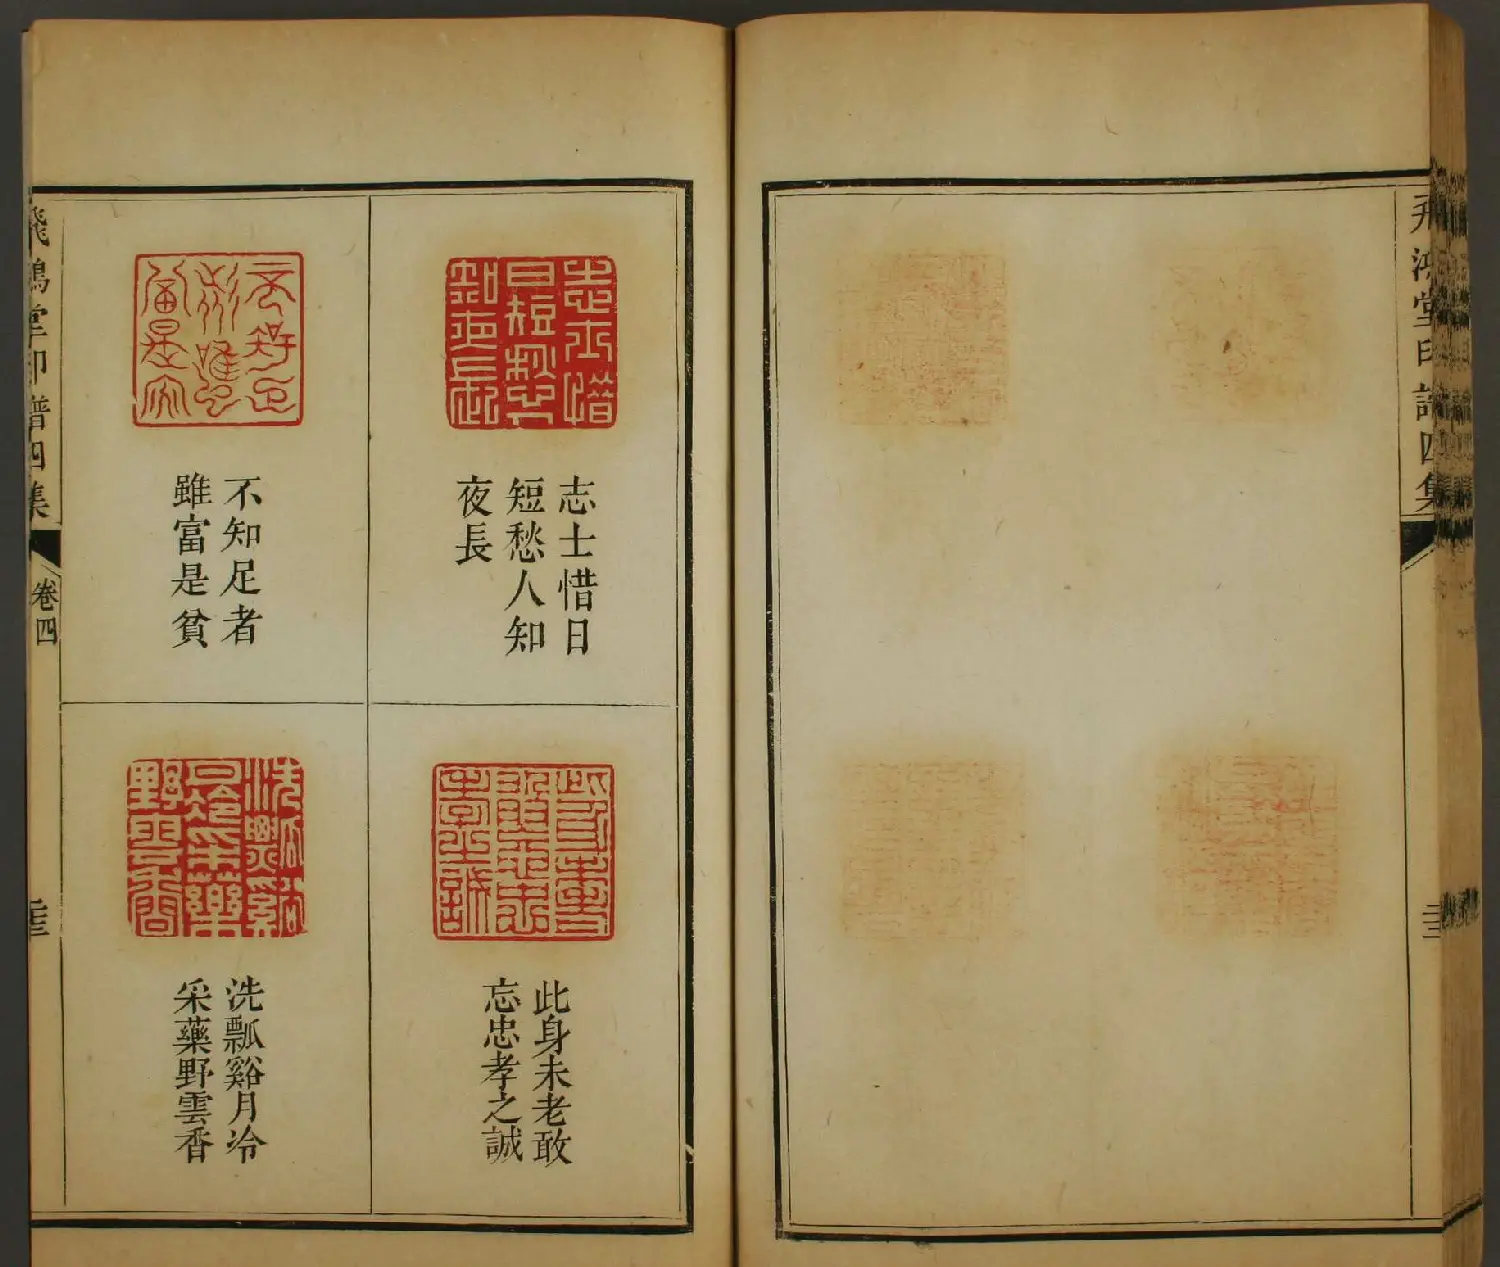 飛鴻堂印譜四集
志士惜日
短愁人知
夜長
不知足者
雖富是貧
此身未老敢
忘忠孝之誠
洗瓢谿月冷
采藥野雲香
飛鴻堂印譜四集
卷四